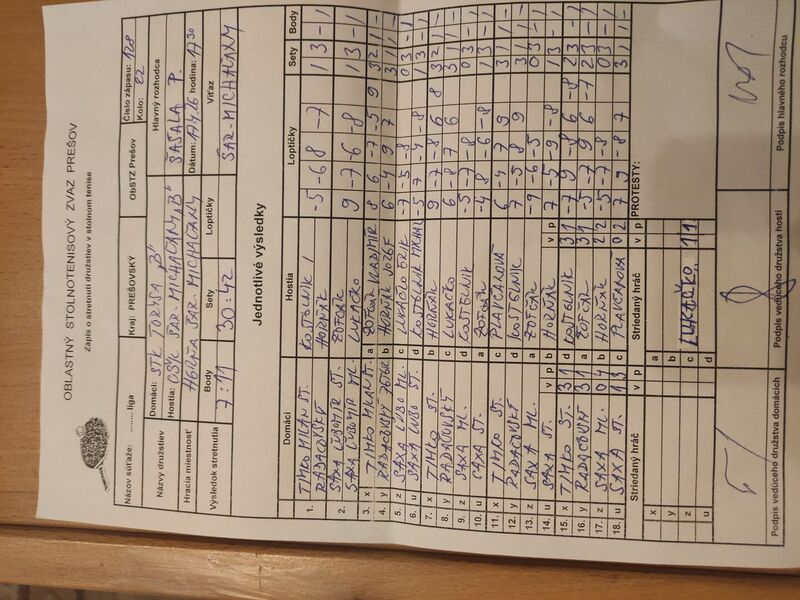 OBLASTNÝ STOLNOTENISOVÝ ZVAZ PREŠOV
Zápis o stretnutí družstiev v stolnom tenise
Názov súťaže: ........ liga Kraj: PREŠOVSKÝ ObSTZ Prešov Číslo zápasu: 1208
Kolo:
Názvy družstiev Domáci: STK TORYSA "B" Hlavný rozhodca
Hostia: OŠK ŠAR. MICHAĽANY "B" ŠAŠALA P.
Hracia miestnosť ŠAR. MICHAĽANY Dátum: 17.4.26 hodina: 17.30
Výsledok stretnutia Body Sety Loptičky Víťaz
7:11 30:42 ŠAR. MICHAĽANY
Jednotlivé výsledky
Domáci Hostia Loptičky Sety Body
1. TIMKO MILAN ST. KOŠTELNIK -5 -6 8 -7 1 3 -
RADAČOVSKÝ HORŇÁK
2. SAXA ĽUBOMIR ST. ZOFČÁK 9 -7 -6 -8 1 3 -
SAXA ĽUBOMIR ML. LUKAČKO
3. x TIMKO MILAN ST. a ZOFČÁK VLADIMÍR 8 6 -7 -5 9 3 2 1 -
4. y RADAČOVSKÝ PETER b HORŇÁK JOZEF 6 -4 9 7 3 1 1 -
5. z SAXA ĽUBO ML. c LUKAČKO ERIK -7 -5 -8 0 3 -
6. u SAXA ĽUBO ST. d KOŠTELNIK MICHAL -5 7 -4 -8 1 3 -
7. x TIMKO ST. b HORŇÁK 9 -7 -8 6 8 3 2 1 -
8. y RADAČOVSKÝ c LUKAČKO 6 -8 7 6 3 1 1 -
9. z SAXA ML. d KOŠTELNIK -5 -7 -8 0 3 -
10. u SAXA ST. a ZOFČÁK -4 8 -6 -8 1 3 -
11. x TIMKO ST. c PLAVČANOVÁ 6 -4 7 9 3 1 1 -
12. y RADAČOVSKÝ d KOŠTELNIK 7 -9 8 9 3 1 1 -
13. z SAXA ML. a ZOFČÁK -9 -6 -5 0 3 -
14. u SAXA ST. b HORŇÁK 7 -5 -9 -8 1 3 -
15. x TIMKO ST. v p 3 1 d KOŠTELNIK v p 3 1 -7 9 -8 6 -8 2 3 -
16. y RADAČOVSKÝ 3 1 a ZOFČÁK 3 1 -5 -7 9 6 -7 2 3 -
17. z SAXA ML. 0 4 b HORŇÁK 2 2 -5 -7 -8 0 3 -
18. u SAXA ST. 1 3 c PLAVČANOVÁ 0 2 7 9 -8 7 3 1 1 -
Striedaný hráč v p Striedaný hráč v p PROTESTY:
x a
y b
z c LUKAČKO 1 1
u d
Podpis vedúceho družstva domácich Podpis vedúceho družstva hostí Podpis hlavného rozhodcu